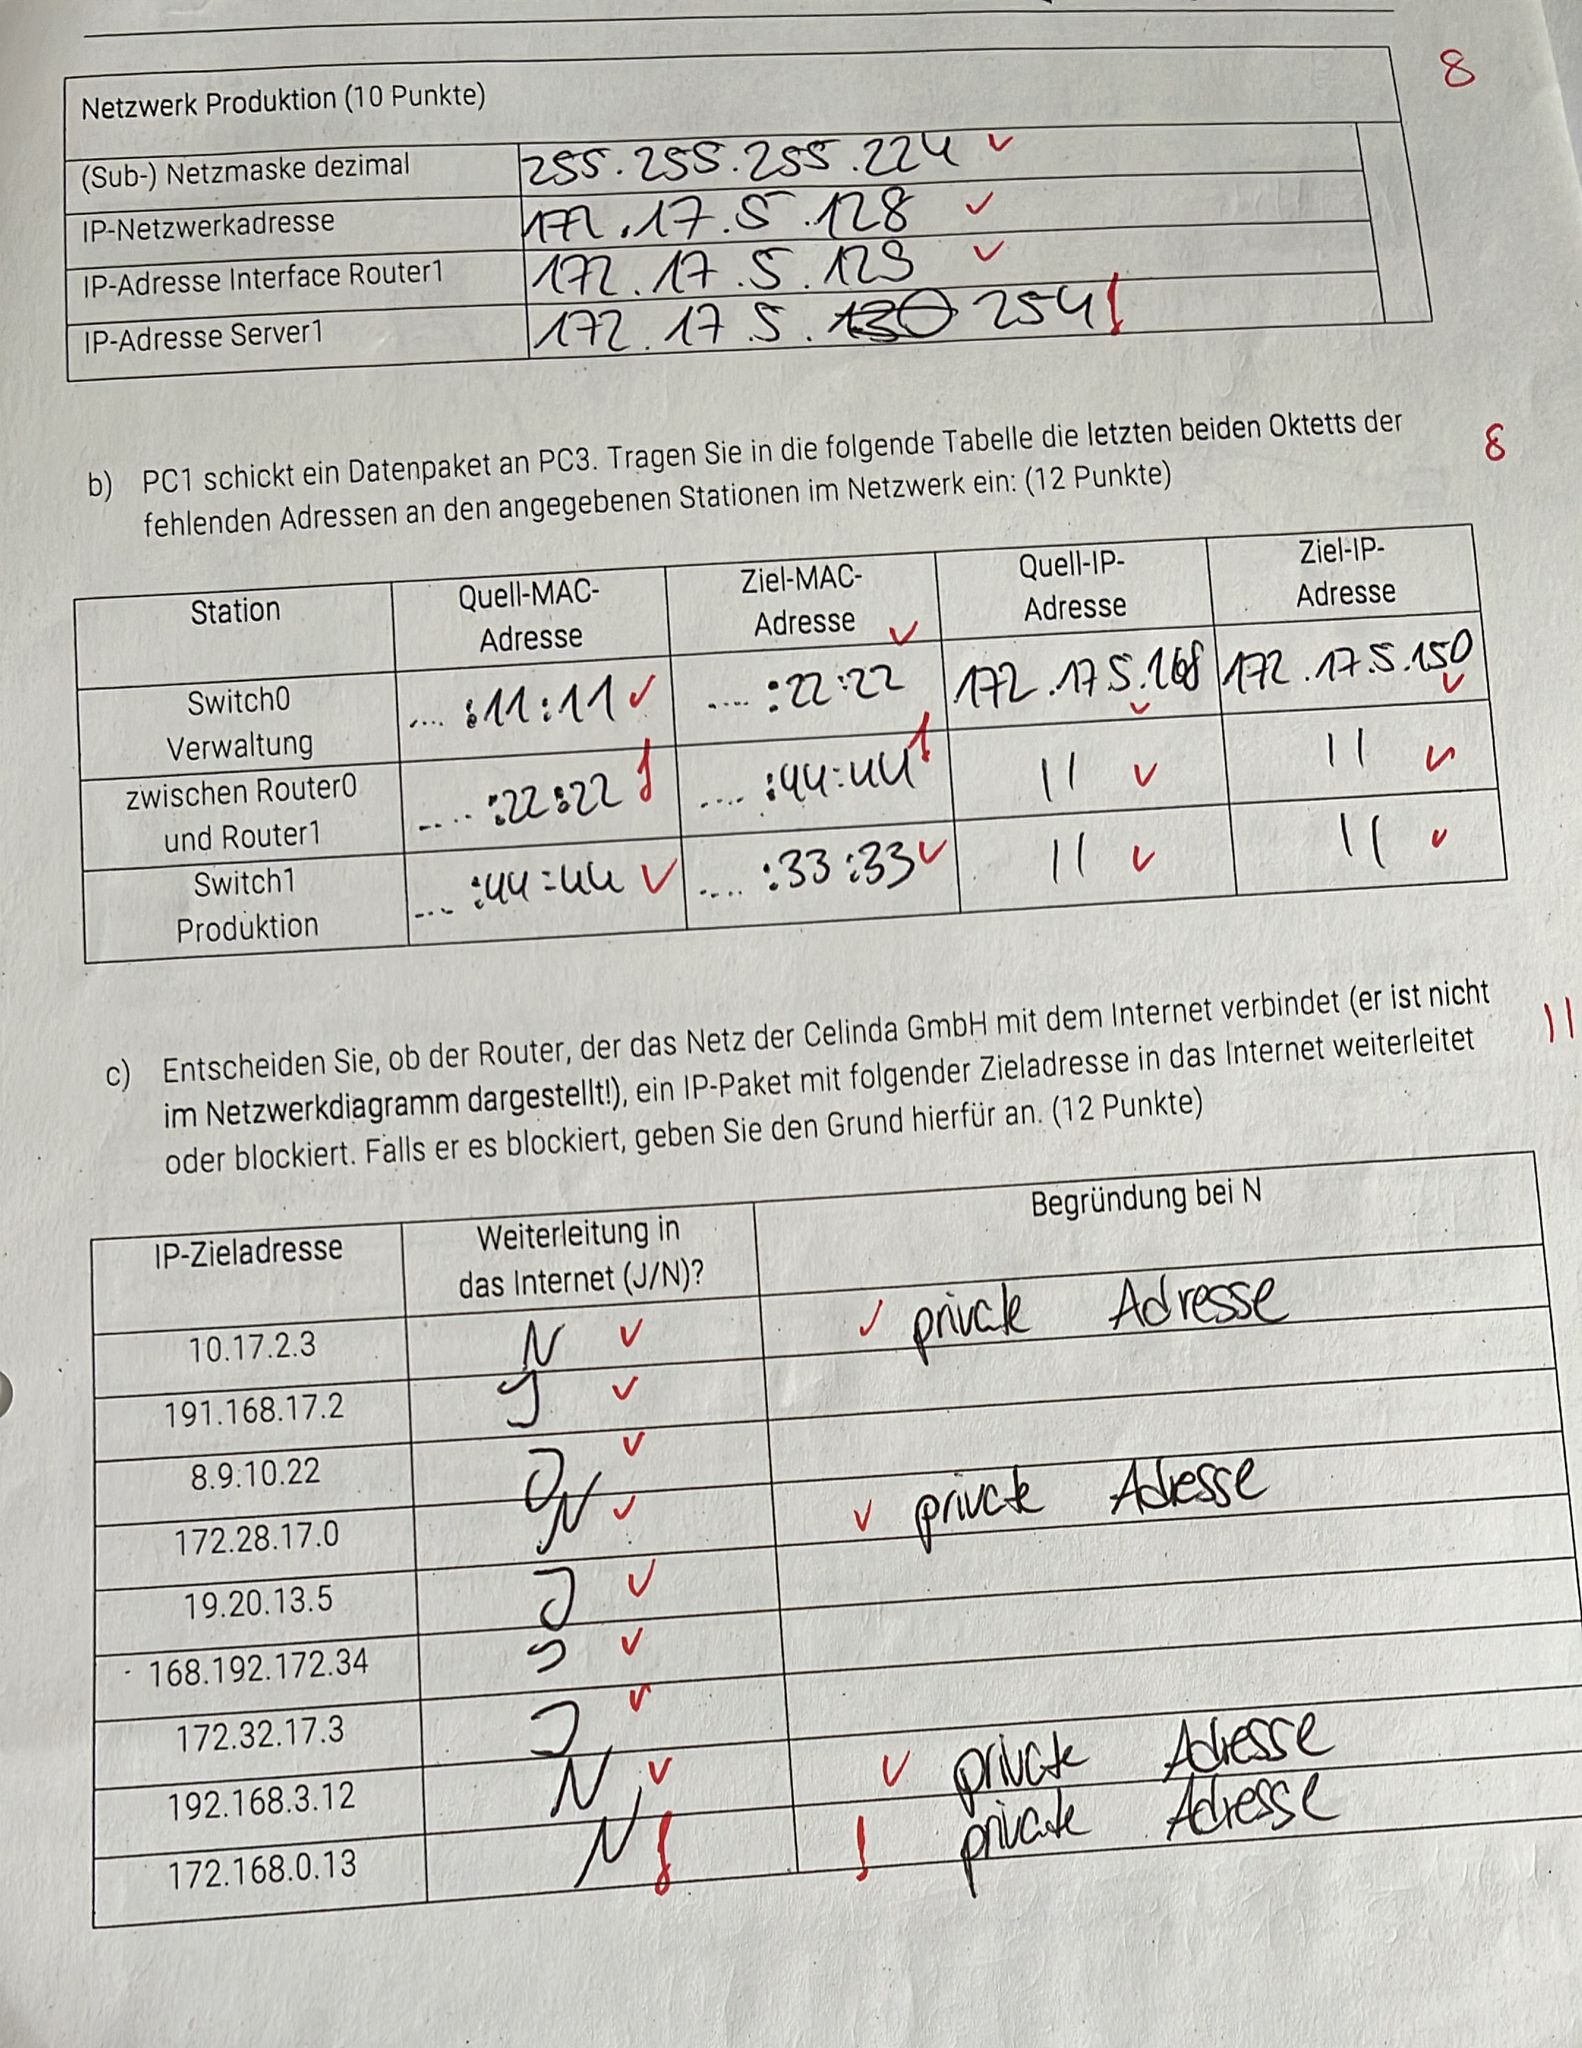 8
Netzwerk Produktion (10 Punkte)
(Sub-) Netzmaske dezimal 255.255.255.224
IP-Netzwerkadresse 172.17.5.128
IP-Adresse Interface Router1 172.17.5.129
IP-Adresse Server1 172.17.5.130 254
b) PC1 schickt ein Datenpaket an PC3. Tragen Sie in die folgende Tabelle die letzten beiden Oktetts der 8
fehlenden Adressen an den angegebenen Stationen im Netzwerk ein: (12 Punkte)
Station Quell-MAC- Ziel-MAC- Quell-IP- Ziel-IP-
Adresse Adresse Adresse Adresse
Switch0 .... :11:11 .... :22:22 172.17.5.168 172.17.5.150
Verwaltung
zwischen Router0 .... :22:22 .... :44:44 11 11
und Router1
Switch1 .... :44:44 .... :33:33 11 11
Produktion
c) Entscheiden Sie, ob der Router, der das Netz der Celinda GmbH mit dem Internet verbindet (er ist nicht 11
im Netzwerkdiagramm dargestellt!), ein IP-Paket mit folgender Zieladresse in das Internet weiterleitet
oder blockiert. Falls er es blockiert, geben Sie den Grund hierfür an. (12 Punkte)
IP-Zieladresse Weiterleitung in Begründung bei N
das Internet (J/N)?
10.17.2.3 N private Adresse
191.168.17.2 J
8.9.10.22 J
172.28.17.0 N private Adresse
19.20.13.5 J
168.192.172.34 J
172.32.17.3 J
192.168.3.12 N private Adresse
172.168.0.13 N private Adresse